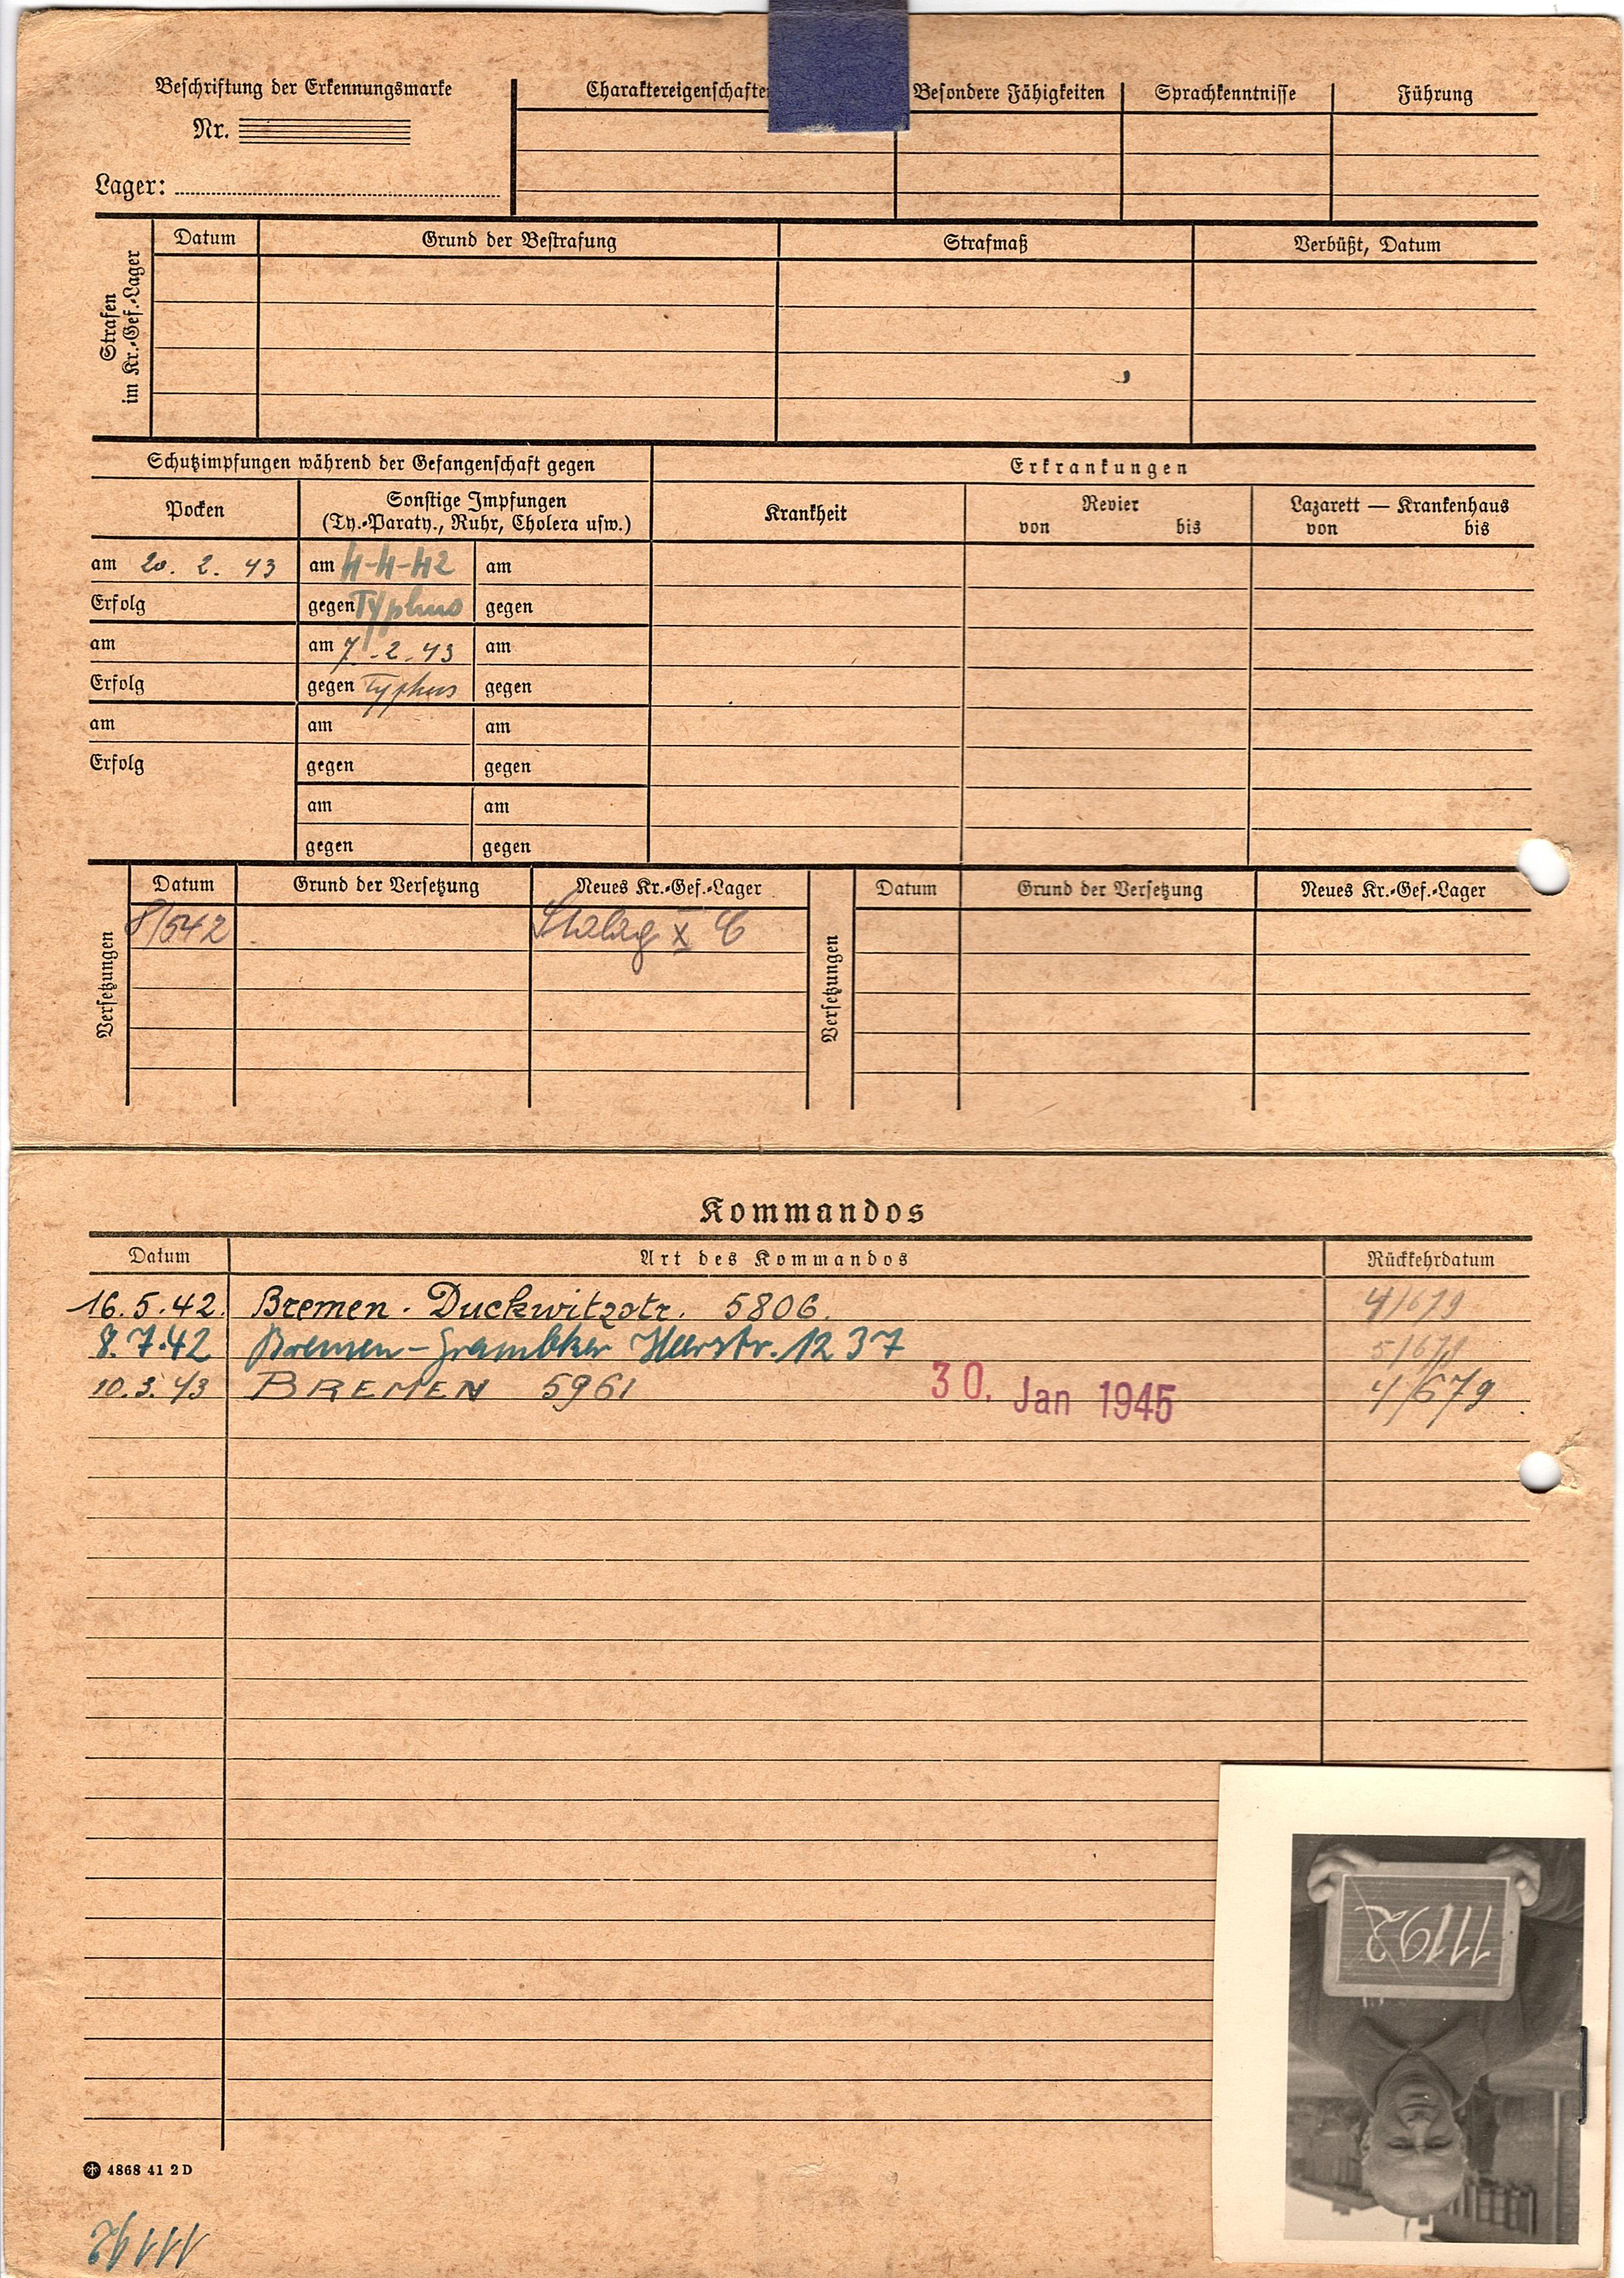 Beschriftung der Erkennungsmarke
Nr.
Lager:
Charaktereigenschaften Besondere Fähigkeiten Sprachkenntnisse Führung
Strafen im Kr.-Gef.-Lager
Datum Grund der Bestrafung Strafmaß Verbüßt, Datum
Schutzimpfungen während der Gefangenschaft gegen
Erkrankungen
Pocken
Sonstige Impfungen
(Ty.-Paraty., Ruhr, Cholera usw.)
Krankheit
Revier
von bis
Lazarett — Krankenhaus
von bis
am 20. 2. 43 am 4-4-42 am
Erfolg gegen Typhus gegen
am am 7.-2.43 am
Erfolg gegen Typhus gegen
am am am
Erfolg gegen gegen
am am
gegen gegen
Versetzungen
Datum Grund der Versetzung Neues Kr.-Gef.-Lager
8/542 Stalag X C
Versetzungen
Datum Grund der Versetzung Neues Kr.-Gef.-Lager
Kommandos
Datum Art des Kommandos Rückkehrdatum
16.5.42. Bremen. Duckwitzstr. 5806. 4/679
8.7.42 Bremen-Grambker Heerstr. 1237
10.3.43 BREMEN 5961 30. Jan 1945 4/679
11192
4868 41 2D
11192